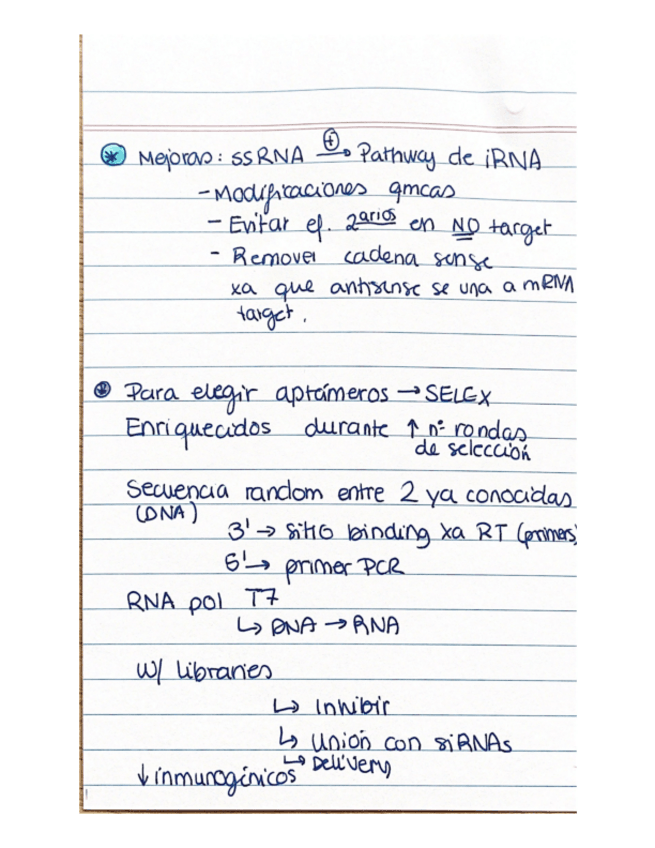 * Mejoras: ssRNA ⊕→ Pathway de iRNA
- Modificaciones qmcas
- Evitar ef. 2arios en NO target
- Remover cadena sense
xa que antisense se una a mRNA
target.
* Para elegir aptámeros → SELEX
Enriquecidos durante ↑ nº rondas
de selección
Secuencia random entre 2 ya conocidas
(DNA)
3' → sitio binding xa RT (primers)
5' → primer PCR
RNA pol T7
↳ DNA → RNA
w/ libraries
↳ Inhibir
↳ Unión con siRNAs
↳ Delivery
↓ inmunogénicos